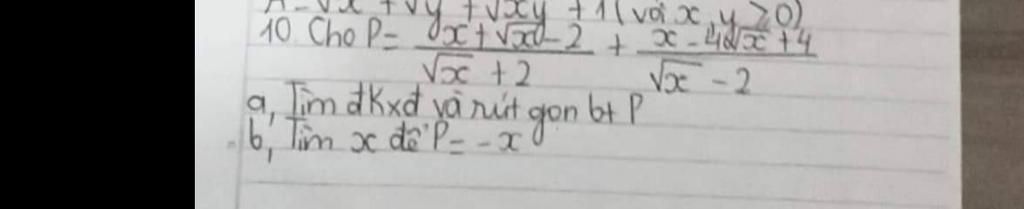 A = √x + √y + √xy + 1 (với x, y ≥ 0)
10. Cho P = (x + √x - 2)/(√x + 2) + (x - 4√x + 4)/(√x - 2)
a, Tìm đKxđ và rút gọn bt P
b, Tìm x để P = -x